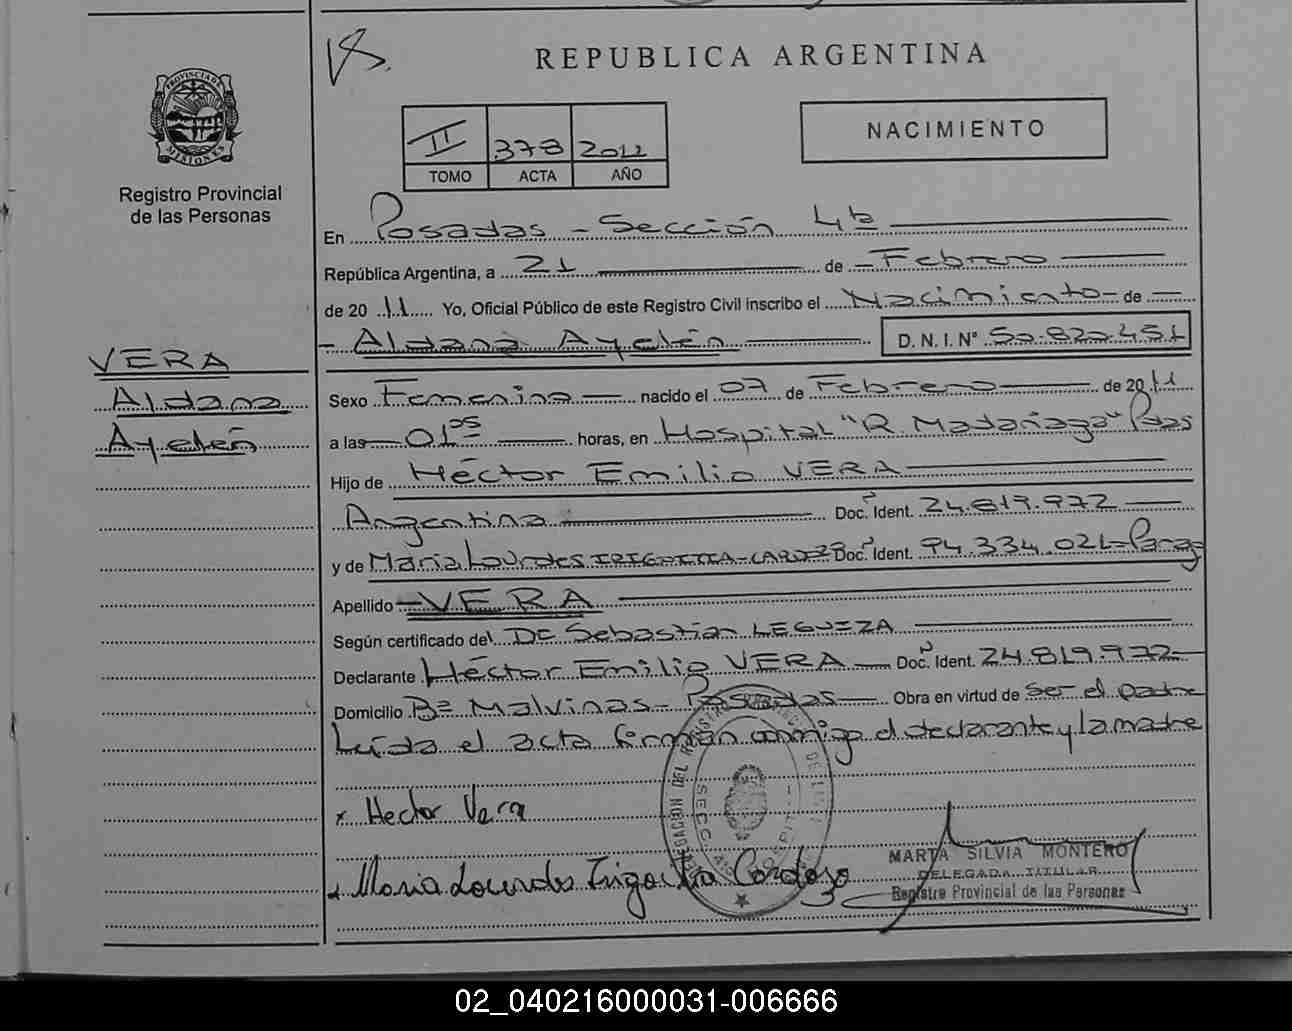 REPUBLICA ARGENTINA
PROVINCIA DE
MISIONES
Registro Provincial
de las Personas
II 378 2011
TOMO ACTA AÑO
NACIMIENTO
En Posadas - Sección 4ta
República Argentina, a 21 de Febrero
de 2011 Yo, Oficial Público de este Registro Civil inscribo el Nacimiento de
Aldana Ayelén D. N. I. Nº 50.822.451
VERA
Aldana
Ayelén
Sexo Femenino nacido el 07 de Febrero de 2011
a las 01 05 horas, en Hospital "R. Madariaga" Pdas
Hijo de Héctor Emilio VERA
Argentina Doc. Ident. 24.819.972
y de María Lourdes Doc. Ident. 94.334.021
Apellido VERA
Según certificado del Dr Sebastian LEGUIZA
Declarante Héctor Emilio VERA Doc. Ident. 24.819.972
Domicilio Bº Malvinas - Posadas Obra en virtud de ser el padre
Leída el acta firman conmigo el declarante y la madre
x Hector Vera
x Maria Lourdes Cardozo
MARTA SILVIA MONTERO
DELEGADA TITULAR
Registro Provincial de las Personas
02_040216000031-006666